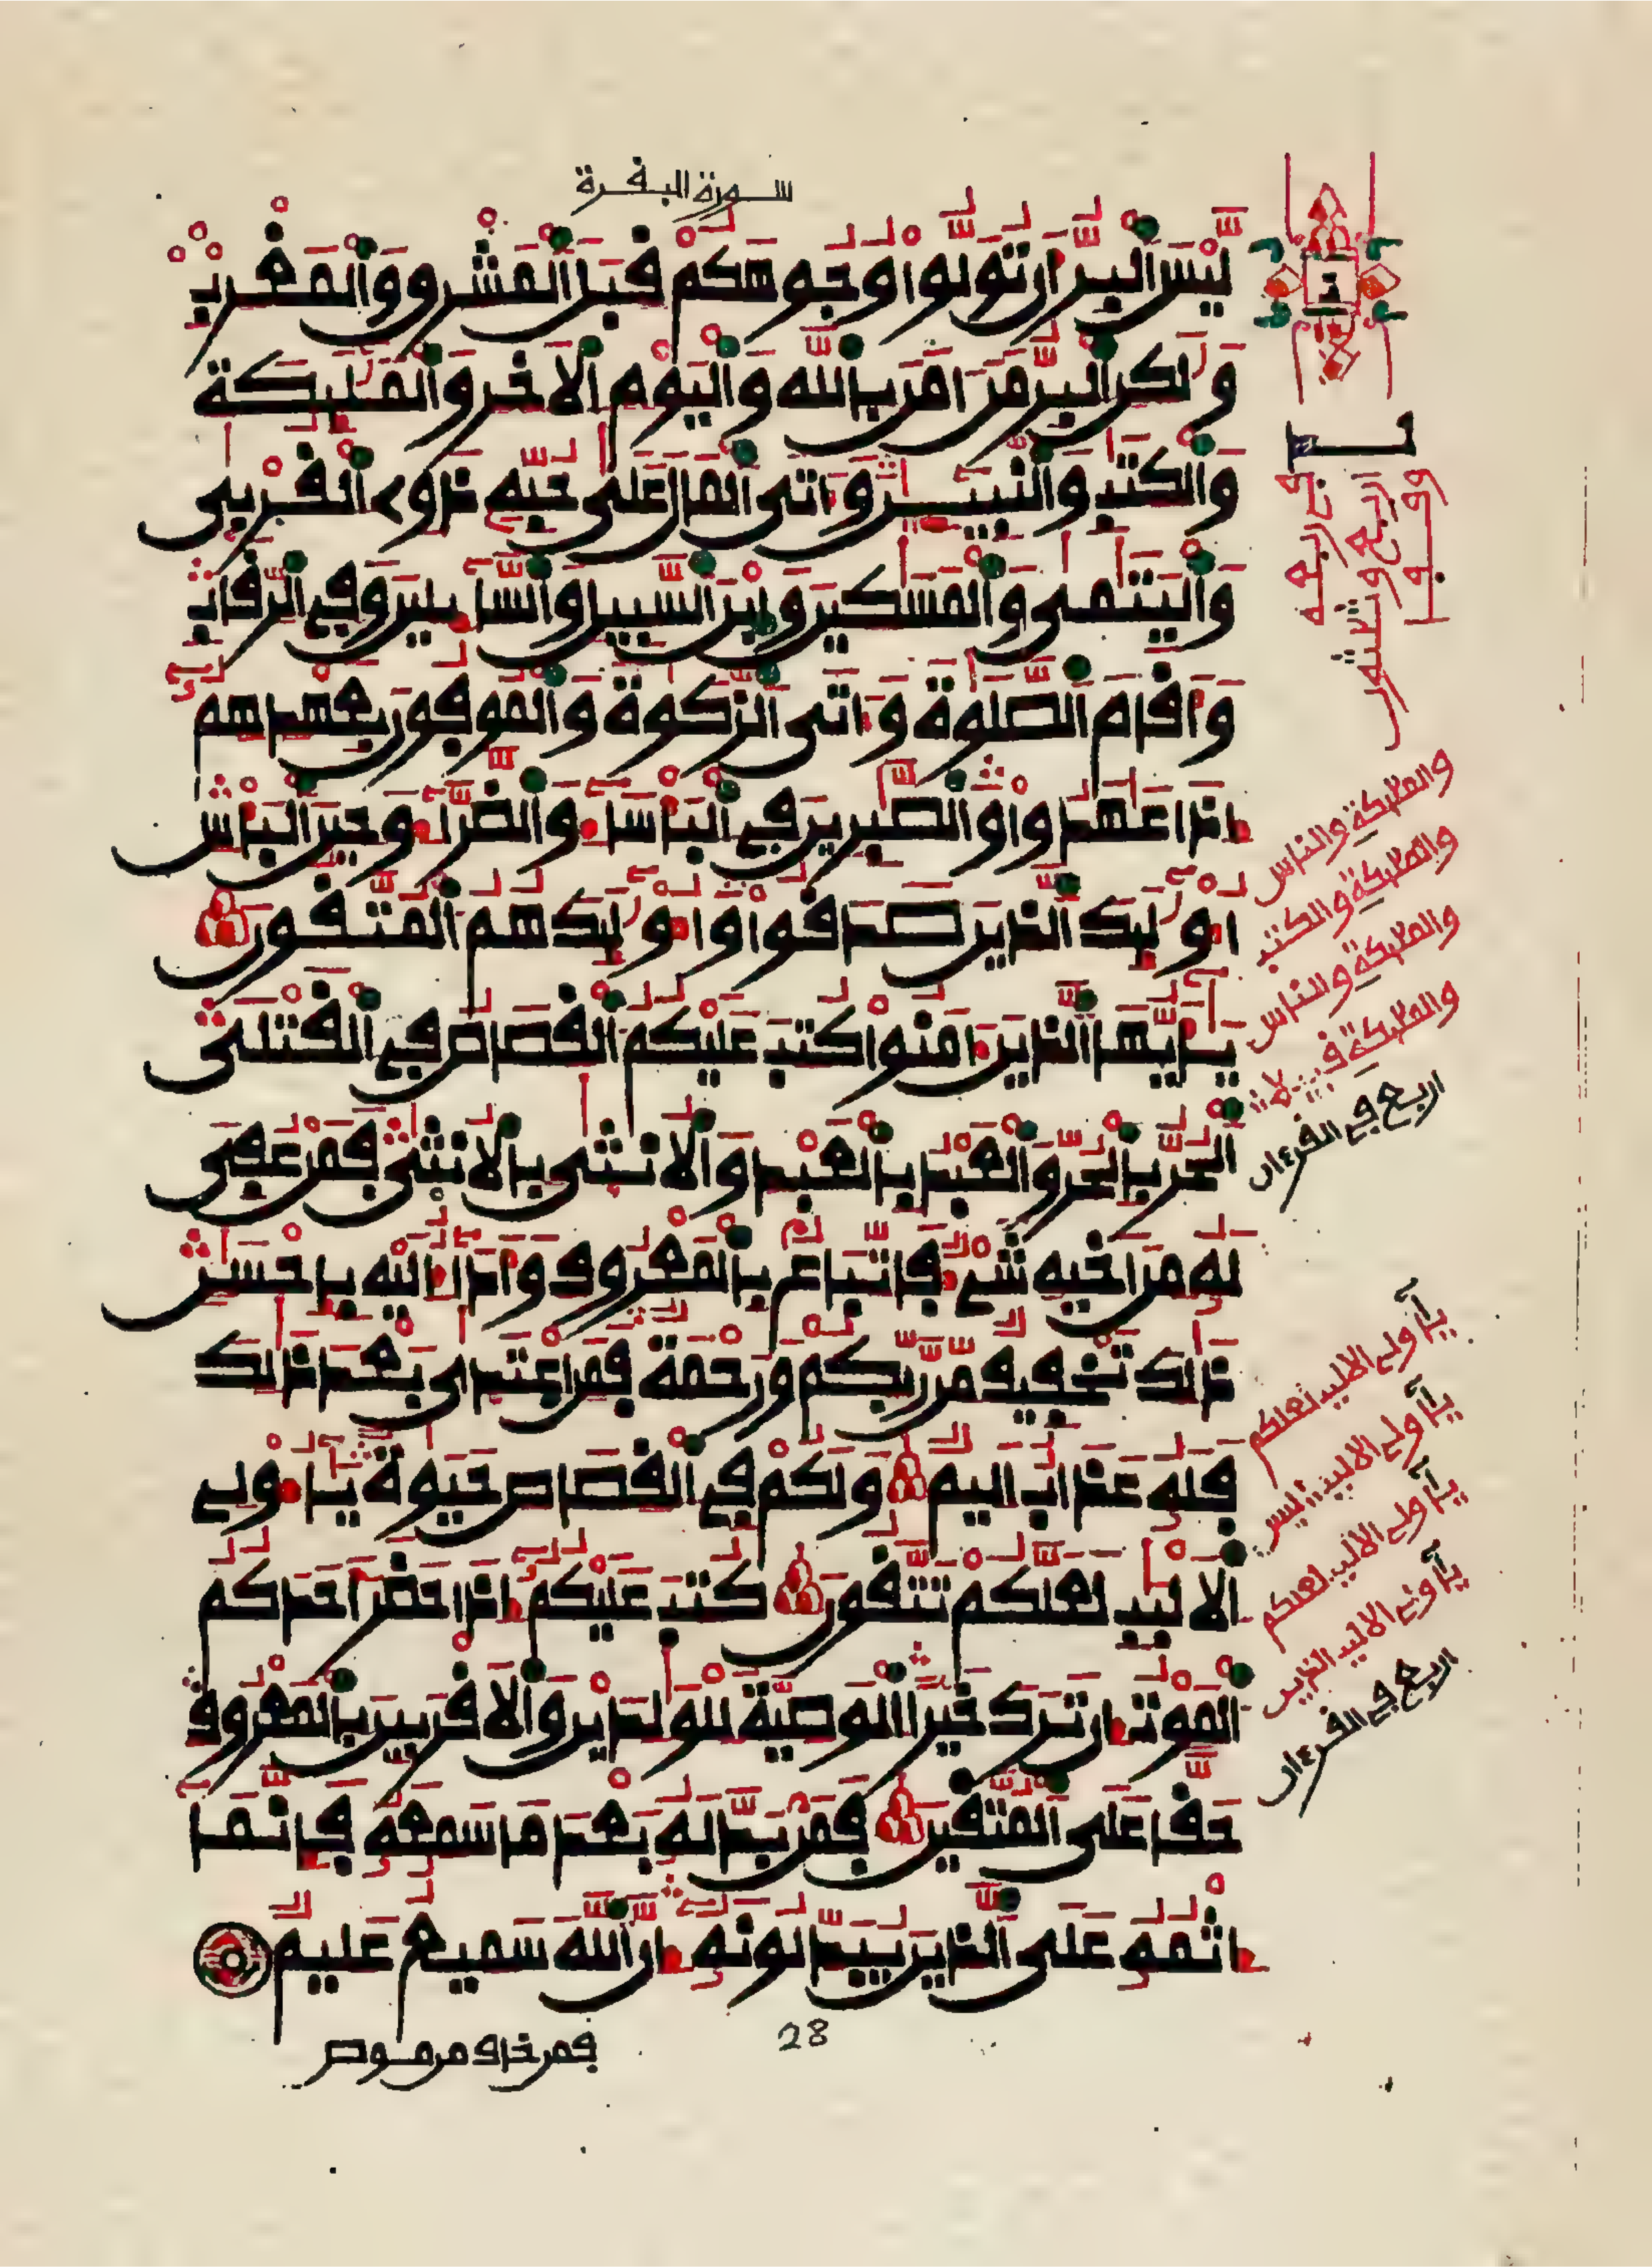 سورة البقرة
لَّيْسَ اَلْبِرُّ أَن تُوَلُّواْ وُجُوهَكُمْ قِبَلَ اَلْمَشْرِقِ وَالْمَغْرِبِ
وَلَٰكِنِ اِلْبِرُّ مَنَ اٰمَنَ بِاللَّهِ وَالْيَوْمِ اِلَاخِرِ وَالْمَلَٰٓئِكَةِ
وَالْكِتَٰبِ وَالنَّبِيٓـِٕينَ وَءَاتَى اَلْمَالَ عَلَىٰ حُبِّهِۦ ذَوِے اِلْقُرْبَىٰ
وَالْيَتَٰمَىٰ وَالْمَسَٰكِينَ وَابْنَ اَلسَّبِيلِ وَالسَّآئِلِينَ وَفِے اِلرِّقَابِ
وَأَقَامَ اَلصَّلَوٰةَ وَءَاتَى اَلزَّكَوٰةَ وَالْمُوفُونَ بِعَهْدِهِمُۥٓ
إِذَا عَٰهَدُواْ وَالصَّٰبِرِينَ فِے اِلْبَأْسَآءِ وَالضَّرَّآءِ وَحِينَ اَلْبَأْسِ
أُوْلَٰٓئِكَ اَلذِينَ صَدَقُواْ وَأُوْلَٰٓئِكَ هُمُ اُلْمُتَّقُونَ
يَٰٓأَيُّهَا اَلذِينَ ءَامَنُواْ كُتِبَ عَلَيْكُمُ اُلْقِصَاصُ فِے اِلْقَتْلَى
اَلْحُرُّ بِالْحُرِّ وَالْعَبْدُ بِالْعَبْدِ وَالُانثَىٰ بِالُانثَىٰ فَمَنْ عُفِيَ
لَهُۥ مِنَ اَخِيهِ شَےْءٌ فَاتِّبَاعٌۢ بِالْمَعْرُوفِ وَأَدَآءٌ اِلَيْهِ بِإِحْسَٰنٍ
ذَٰلِكَ تَخْفِيفٌ مِّن رَّبِّكُمْ وَرَحْمَةٌ فَمَنِ اِعْتَدَىٰ بَعْدَ ذَٰلِكَ
فَلَهُۥ عَذَابٌ اَلِيمٌ وَلَكُمْ فِے اِلْقِصَاصِ حَيَوٰةٌ يَٰٓأُوْلِے
اِلَالْبَٰبِ لَعَلَّكُمْ تَتَّقُونَ كُتِبَ عَلَيْكُمُۥٓ إِذَا حَضَرَ أَحَدَكُمُ
اُلْمَوْتُ إِن تَرَكَ خَيْراً اِلْوَصِيَّةُ لِلْوَٰلِدَيْنِ وَالَاقْرَبِينَ بِالْمَعْرُوفِ
حَقّاً عَلَى اَلْمُتَّقِينَ فَمَنۢ بَدَّلَهُۥ بَعْدَ مَا سَمِعَهُۥ فَإِنَّمَآ
إِثْمُهُۥ عَلَى اَلذِينَ يُبَدِّلُونَهُۥٓ إِنَّ اَللَّهَ سَمِيعٌ عَلِيمٌ
28
فمن خاف من موص
والملئكة والناس
والملئكة والكتب
والملئكة والناس
اربع في القرءان
يأولي الالبب لعلكم
يأولي الالبب لعلكم
يأولي الالبب الذين
اربع في القرءان